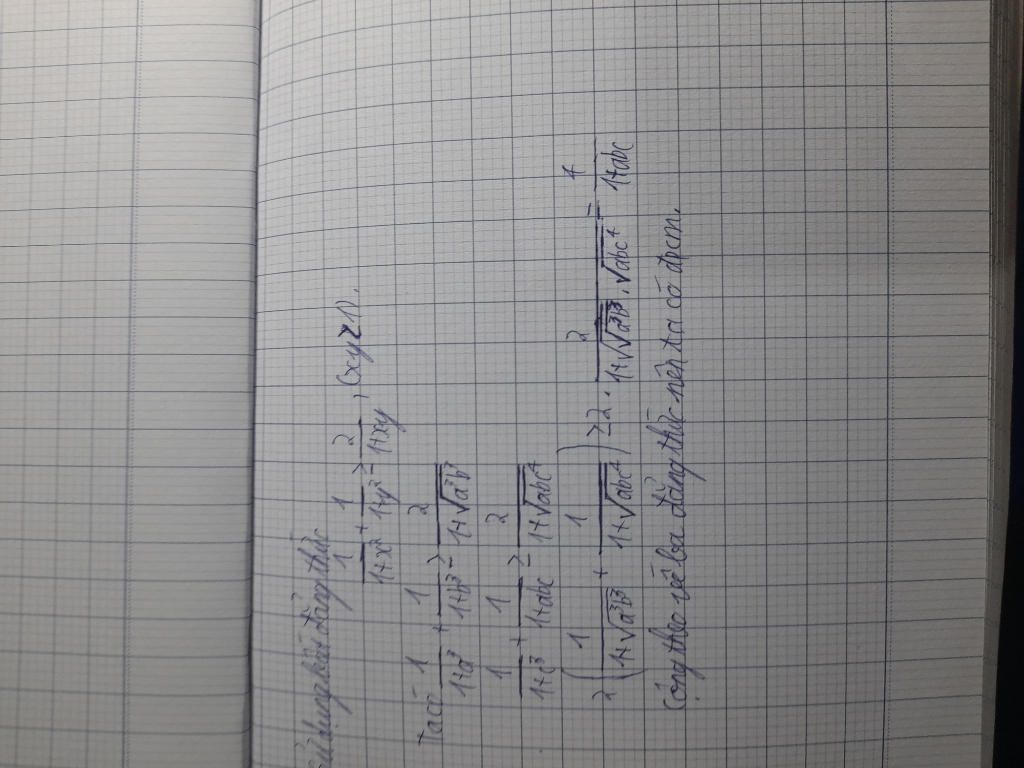 Sử dụng bất đẳng thức
1/(1+x²) + 1/(1+y²) ≥ 2/(1+xy), (xy≥1).
Ta có 1/(1+a³) + 1/(1+b³) ≥ 2/(1+√(a³b³))
1/(1+c³) + 1/(1+abc) ≥ 2/(1+√(abc⁴))
2(1/(1+√(a³b³)) + 1/(1+√(abc⁴))) ≥ 2. 2/(1+√(√(a³b³).√(abc⁴))) = 4/(1+abc)
Cộng theo vế ba đẳng thức nên ta có đpcm.